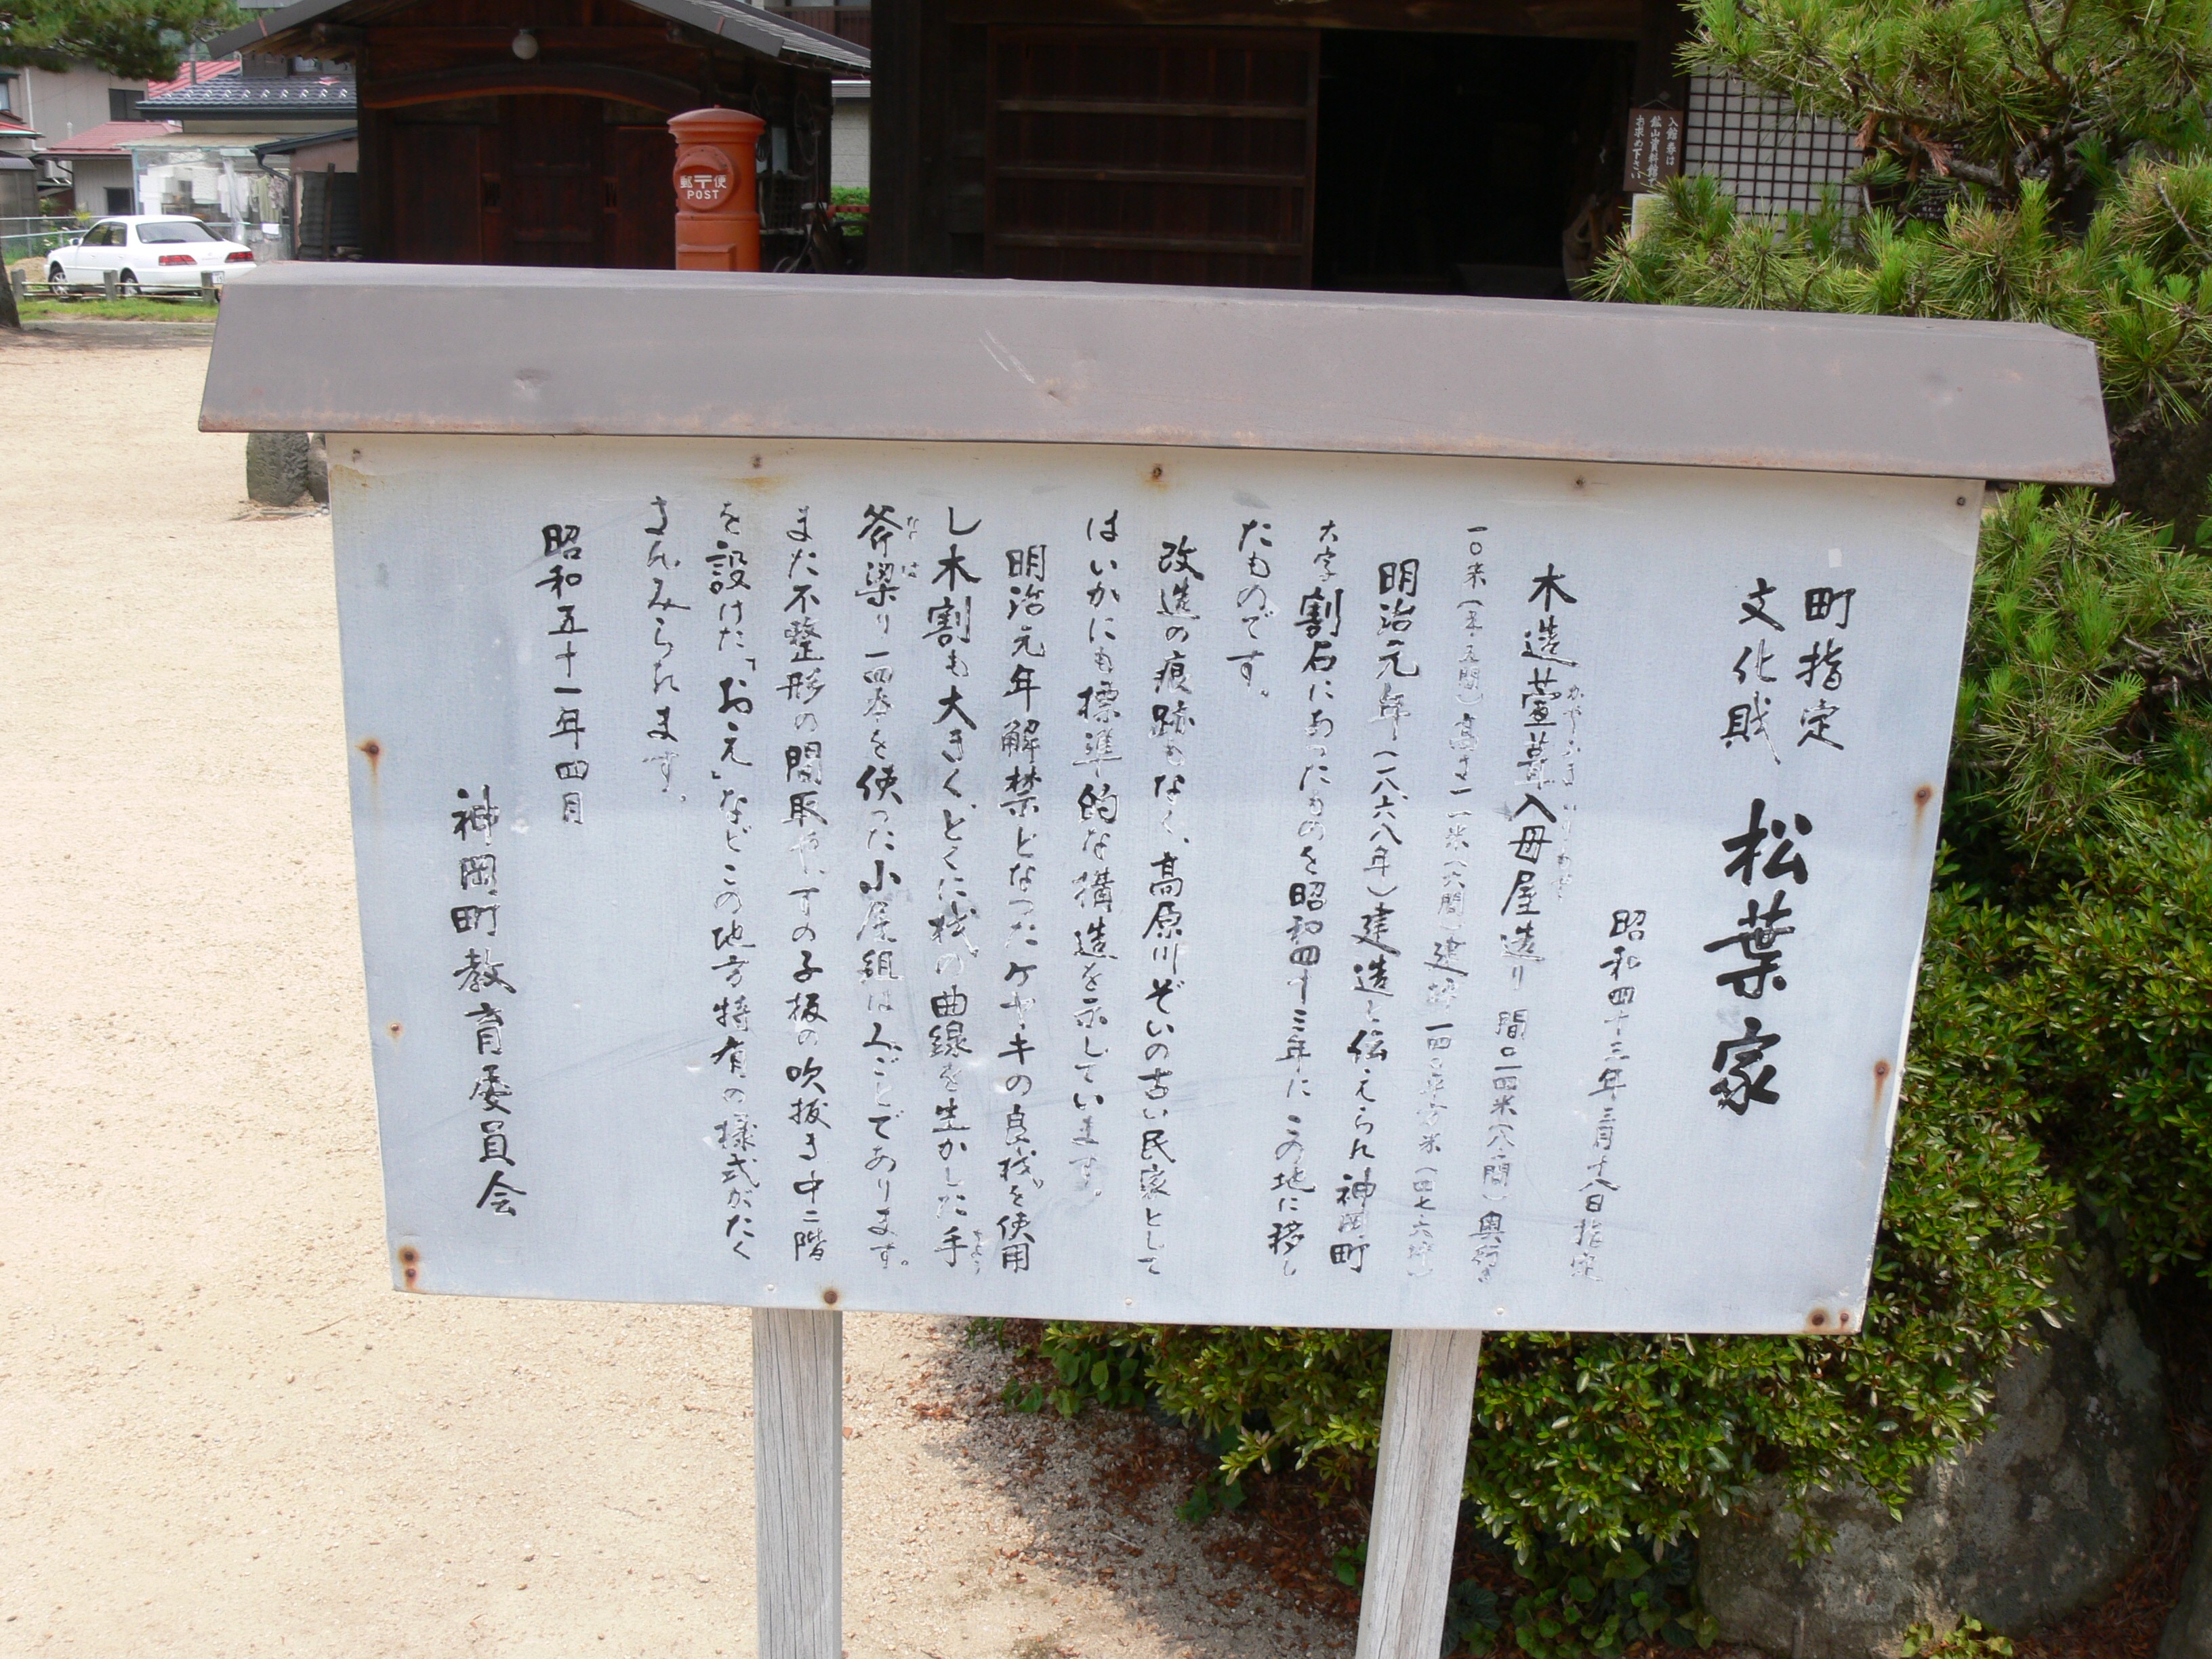 町指定
文化財
松葉家
昭和四十三年三月十八日指定
かやぶきいりもや
木造萱葺入母屋造り 間口一四米(八間)奥行き
一〇米(五・五間)高さ一一米(六間)建坪一四〇平方米(四七・六坪)
明治元年(一八六八年)建造と伝えられ神岡町
大字割石にあったものを昭和四十三年にこの地に移し
たものです。
改造の痕跡もなく、高原川ぞいの古い民家として
はいかにも標準的な構造を示しています。
明治元年解禁となったケヤキの良材を使用
し木割も大きく、とくに材の曲線を生かした手
斧梁り一四本を使った小屋組はみごとであります。
また不整形の間取や、すの子板の吹抜き中二階
を設けた「おえ」などこの地方特有の様式がたく
さんみられます。
昭和五十一年四月
神岡町教育委員会
郵〒便
POST
入館券は
鉱山資料館で
お求め下さい